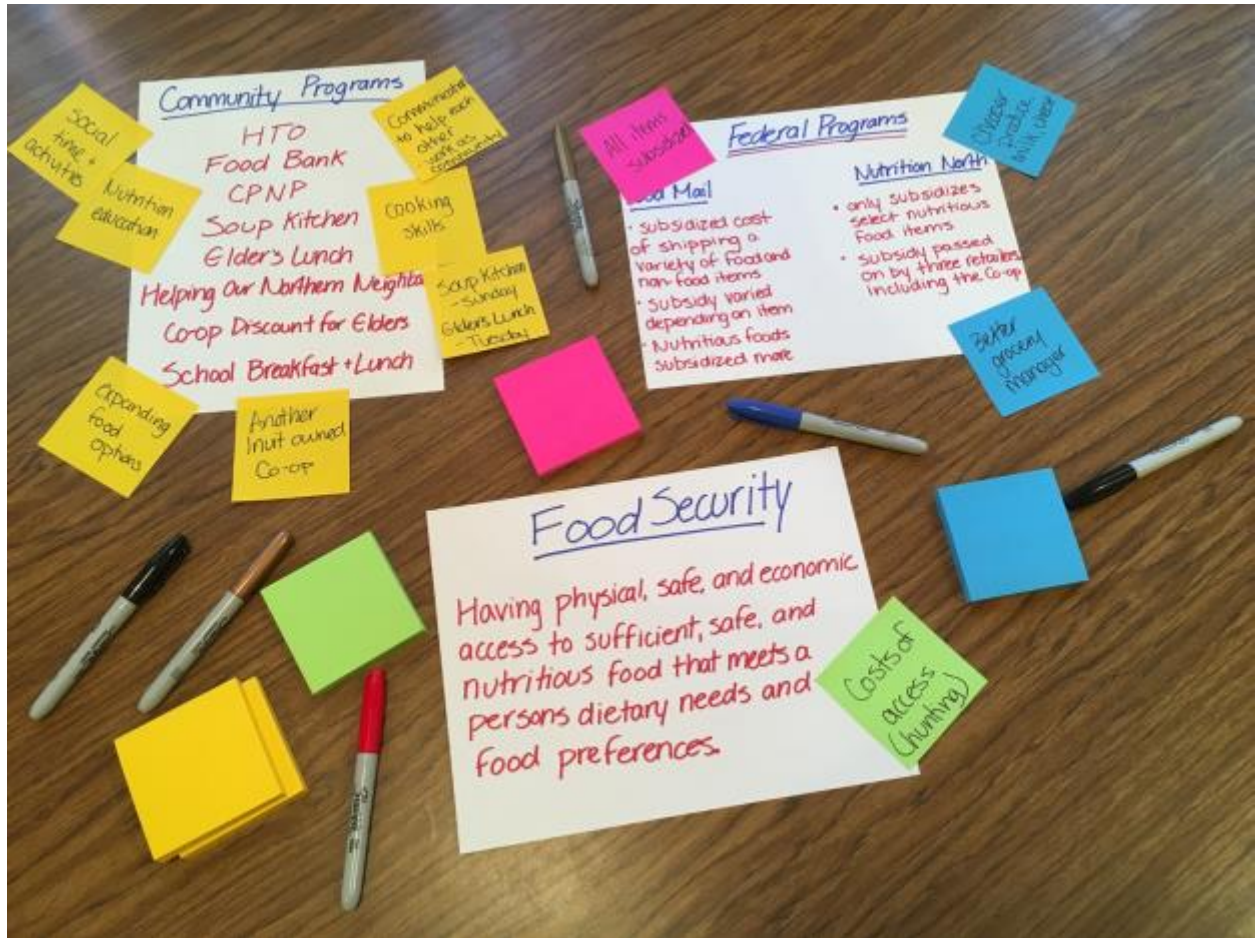 Community Programs
HTO
Food Bank
CPNP
Soup Kitchen
Elders Lunch
Helping Our Northern Neighbo
Co-op Discount for Elders
School Breakfast + Lunch
Social
time +
activities
Nutrition
education
to help each
other
work as
community
Cooking
skills
Soup Kitchen
- Sunday
Elders Lunch
- Tuesday
Expanding
food
options
Another
Inuit owned
Co-op
All items
subsidized
Federal Programs
od Mail
• subsidized cost
of shipping a
variety of food and
non-food items
• Subsidy varied
depending on item
• Nutritious foods
subsidized more
Nutrition North
• only subsidizes
select nutritious
food items
• subsidy passed
on by three retailers
including the Co-op
Cheaper
produce
milk, cheese
Better
grocery
manager
Food Security
Having physical, safe, and economic
access to sufficient, safe, and
nutritious food that meets a
persons dietary needs and
food preferences.
Costs of
access
(hunting)